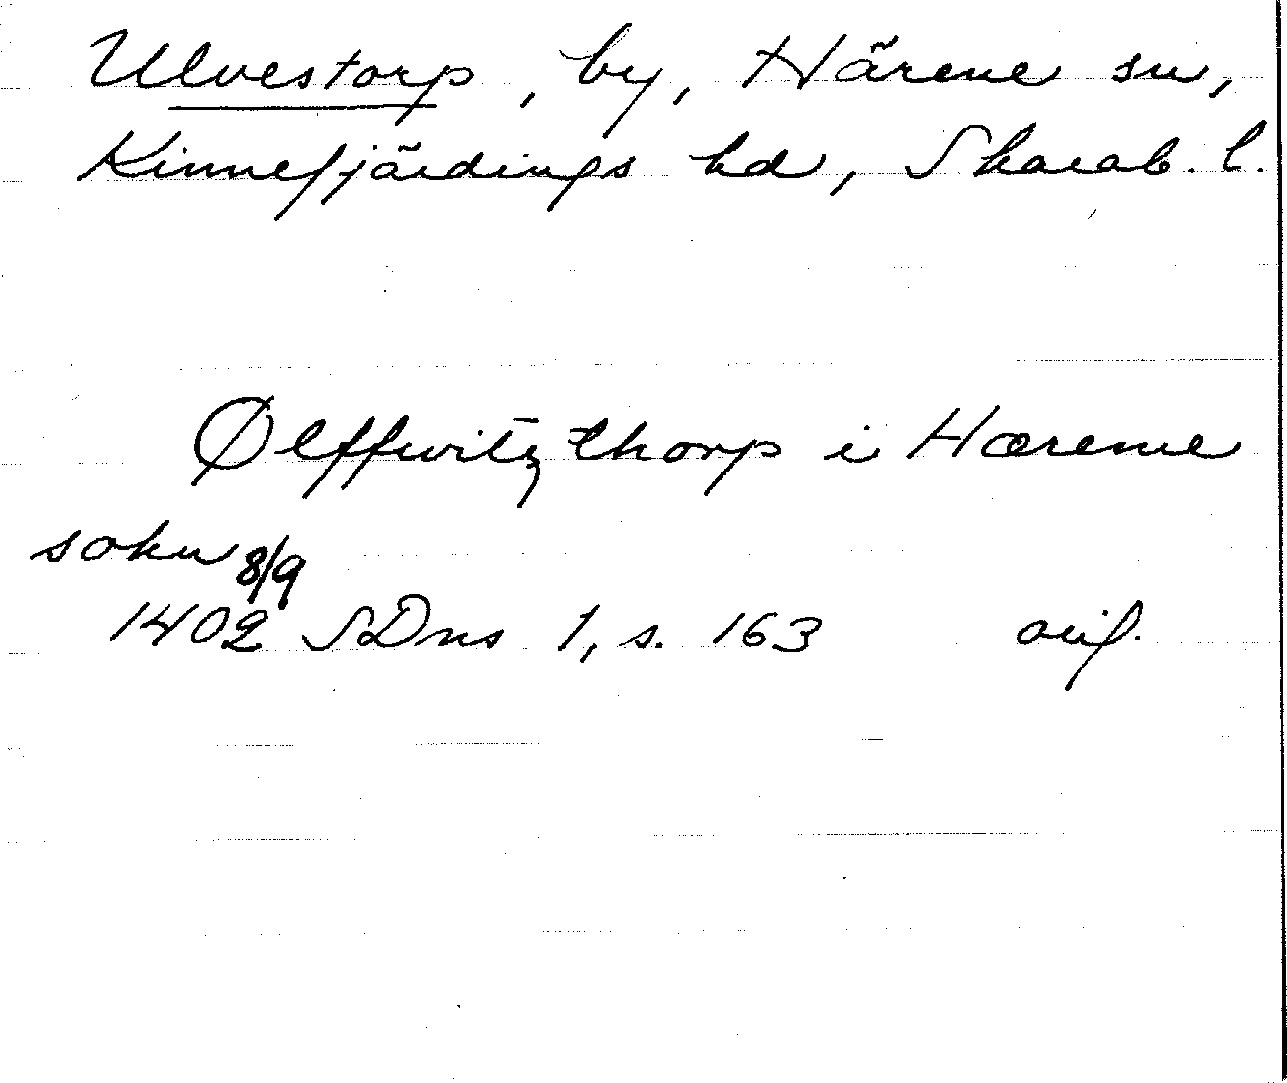 Ulvestorp, by, Härene sn,
Kinnefjärdings hd, Skarab. l.
Ølffwitzthorp i Hærene
sokn 8/9
1402 SDns 1, s. 163 orig.